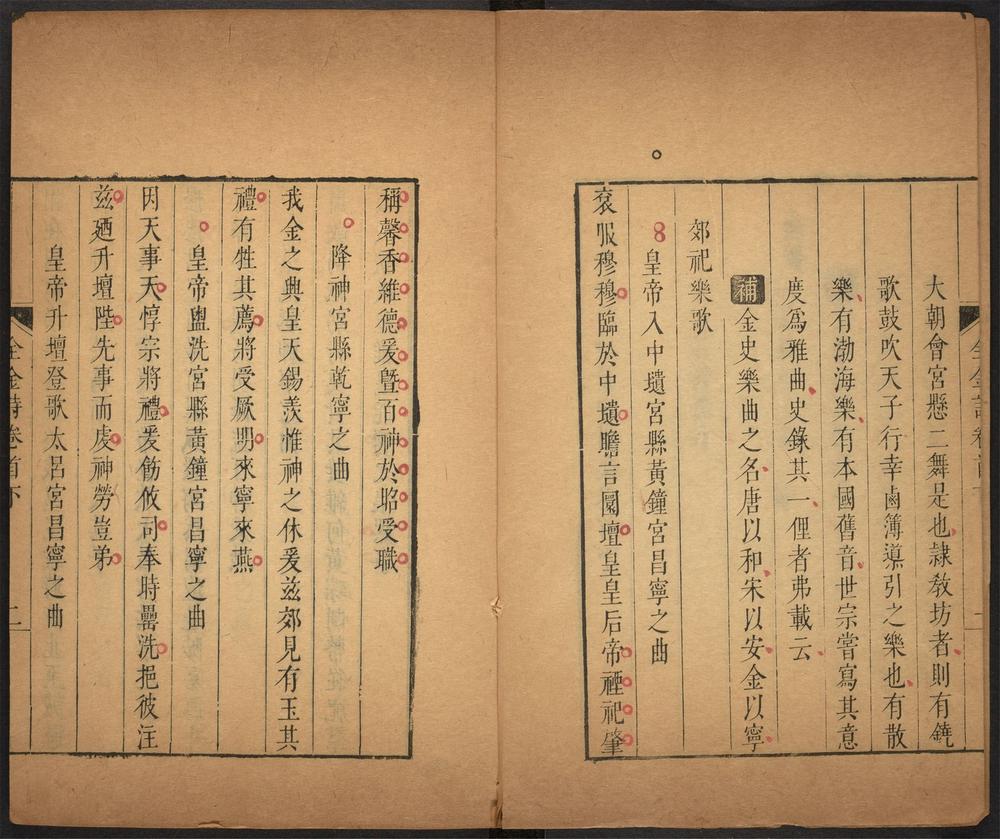 大朝會宮懸二舞是也隷敎坊者則有鐃
歌鼓吹天子行幸鹵簿導引之樂也有散
樂有渤海樂有本國舊音世宗嘗寫其意
度爲雅曲史錄其一俚者弗載云
補金史樂曲之名唐以和宋以安金以寧
郊祀樂歌
皇帝入中壝宮縣黃鐘宮昌寧之曲
袞服穆穆臨於中壝瞻言圜壇皇皇后帝禋祀肇
稱馨香維德爰曁百神於昭受職
降神宮縣乾寧之曲
我金之興皇天錫羨惟神之休爰兹郊見有玉其
禮有牲其薦將受厥明來寧來燕
皇帝盥洗宮縣黃鐘宮昌寧之曲
因天事天惇宗將禮爰飭攸司奉時罍洗挹彼注
兹廼升壇陛先事而虔神勞豈弟
皇帝升壇登歌太呂宮昌寧之曲
全金詩卷首下
二